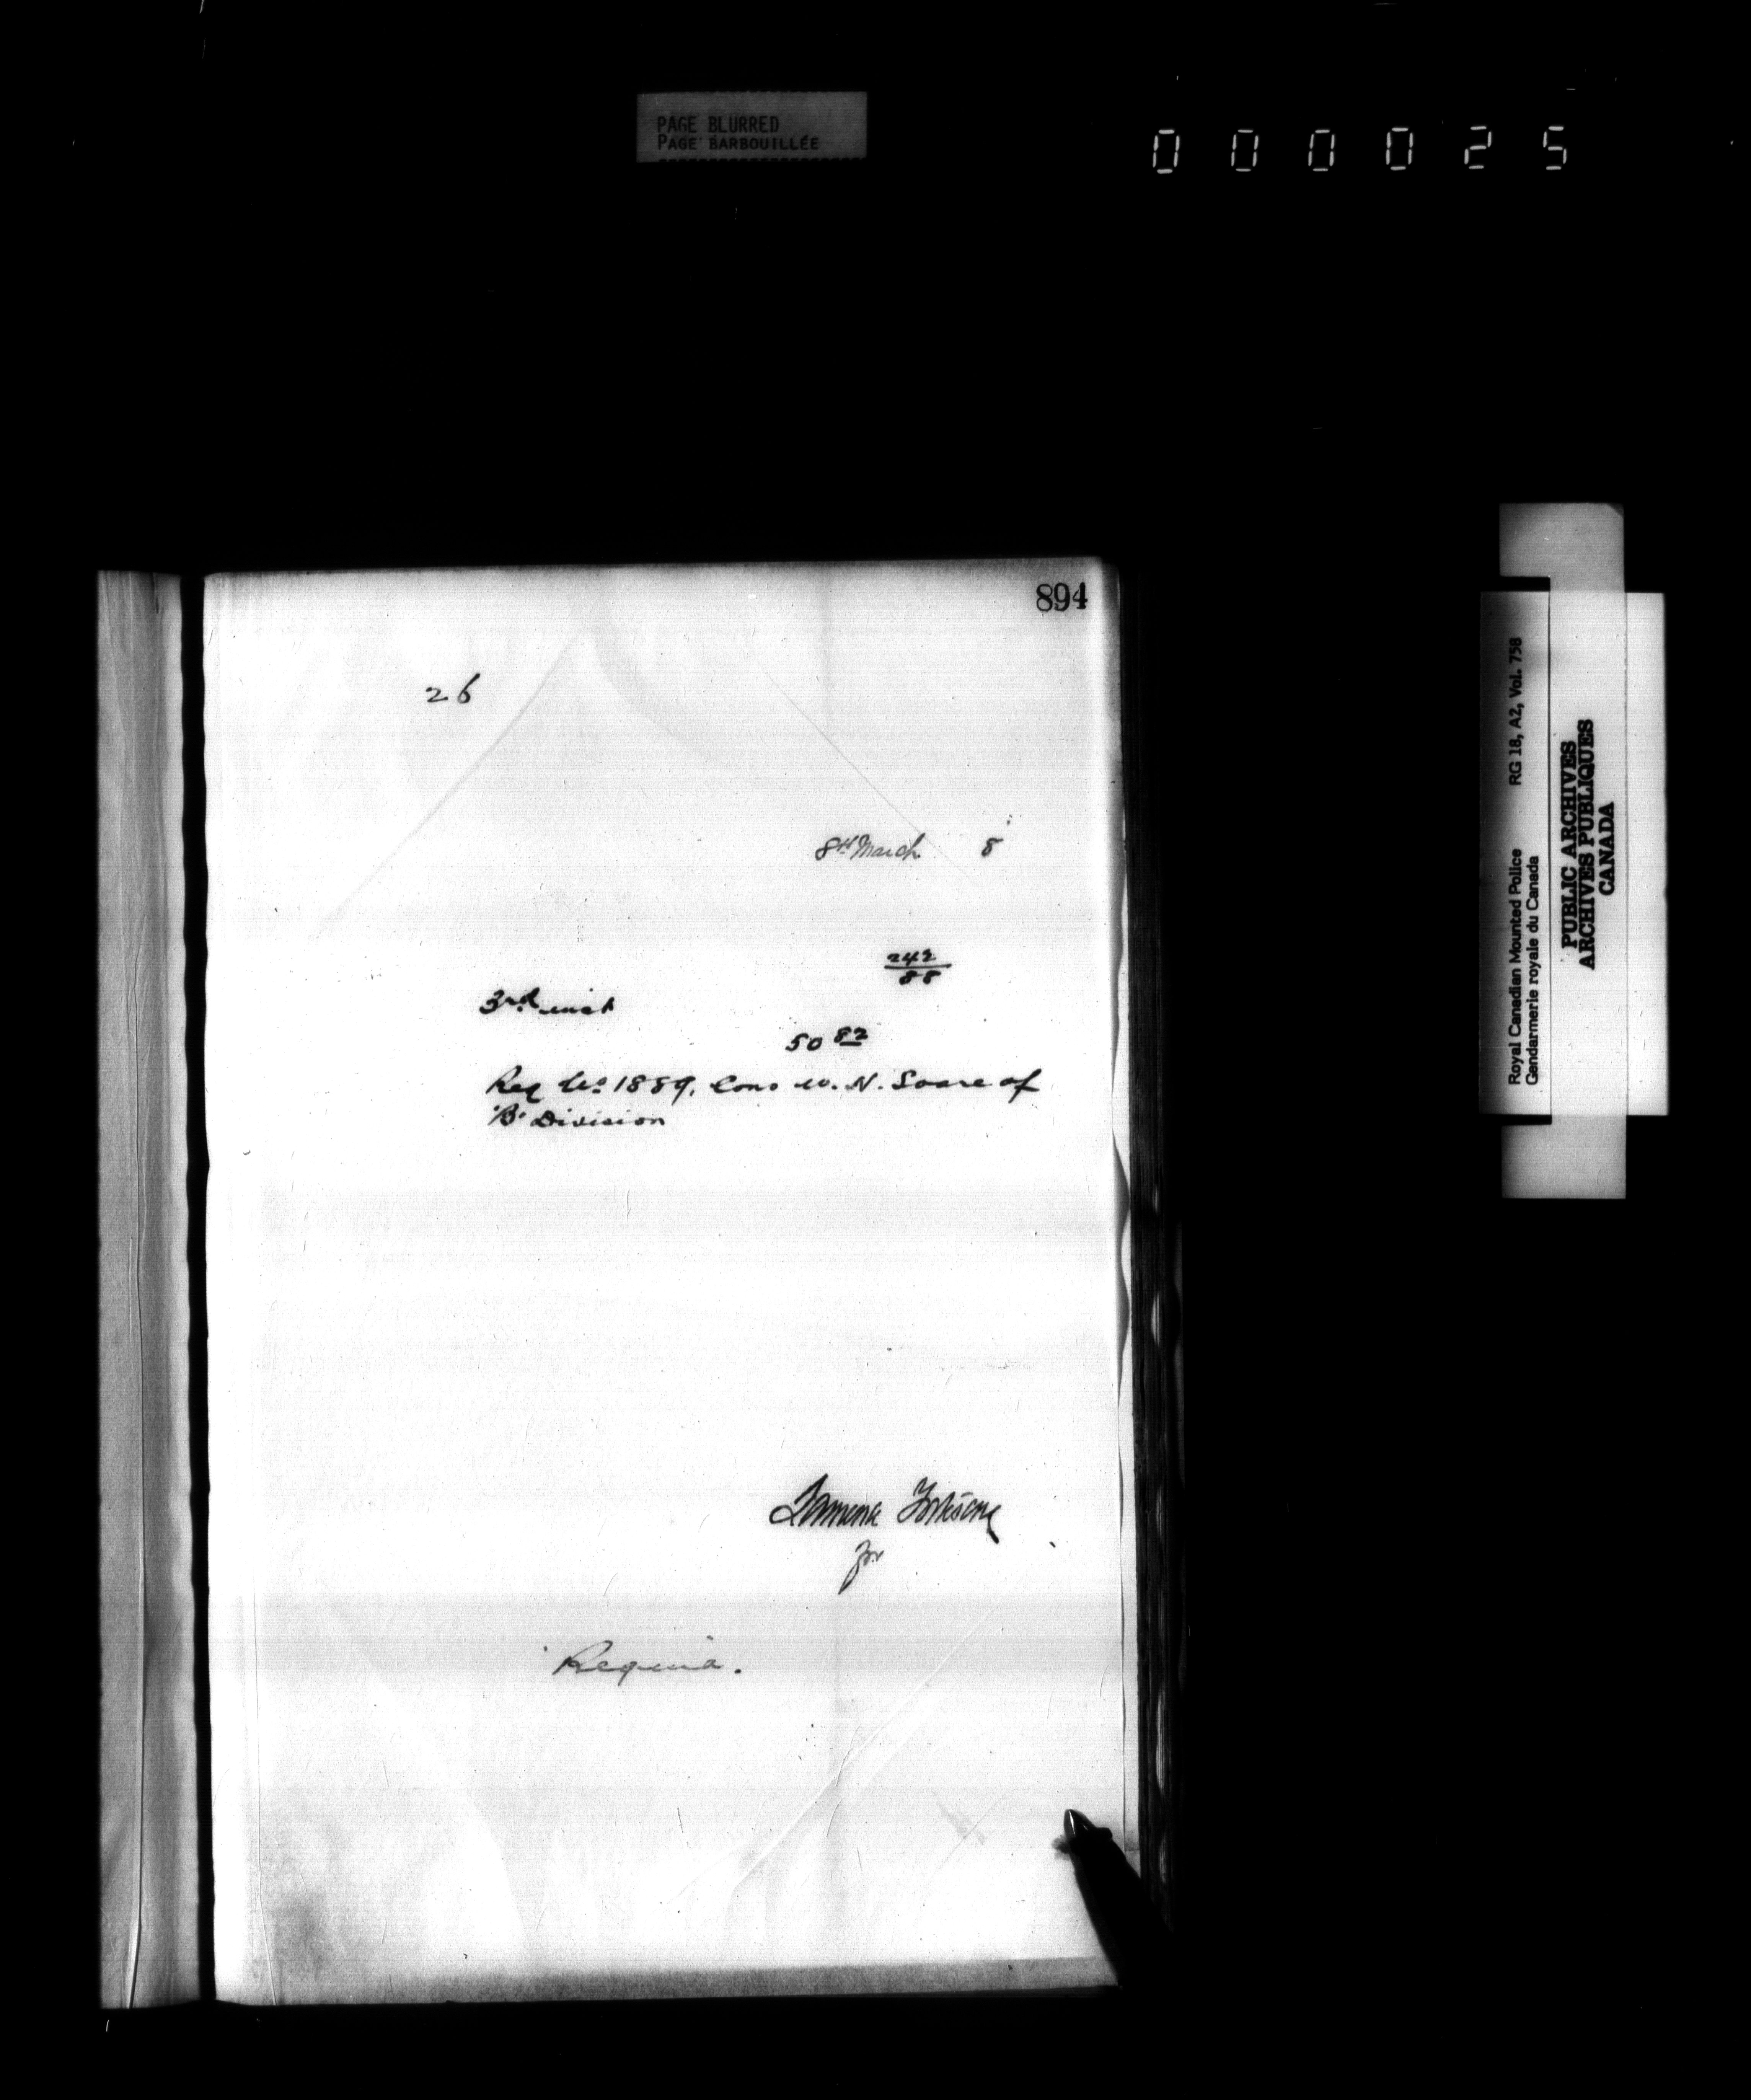 PAGE BLURRED
PAGE BARBOUILLÉE
000025
894
26
8th March 8
242
88
3rd inst
50 82
Reg No 1889, Cons W. N. Soare of
"B" Division
for
Regina.
Royal Canadian Mounted Police RG 18, A2, Vol. 758
Gendarmerie royale du Canada
PUBLIC ARCHIVES
ARCHIVES PUBLIQUES
CANADA